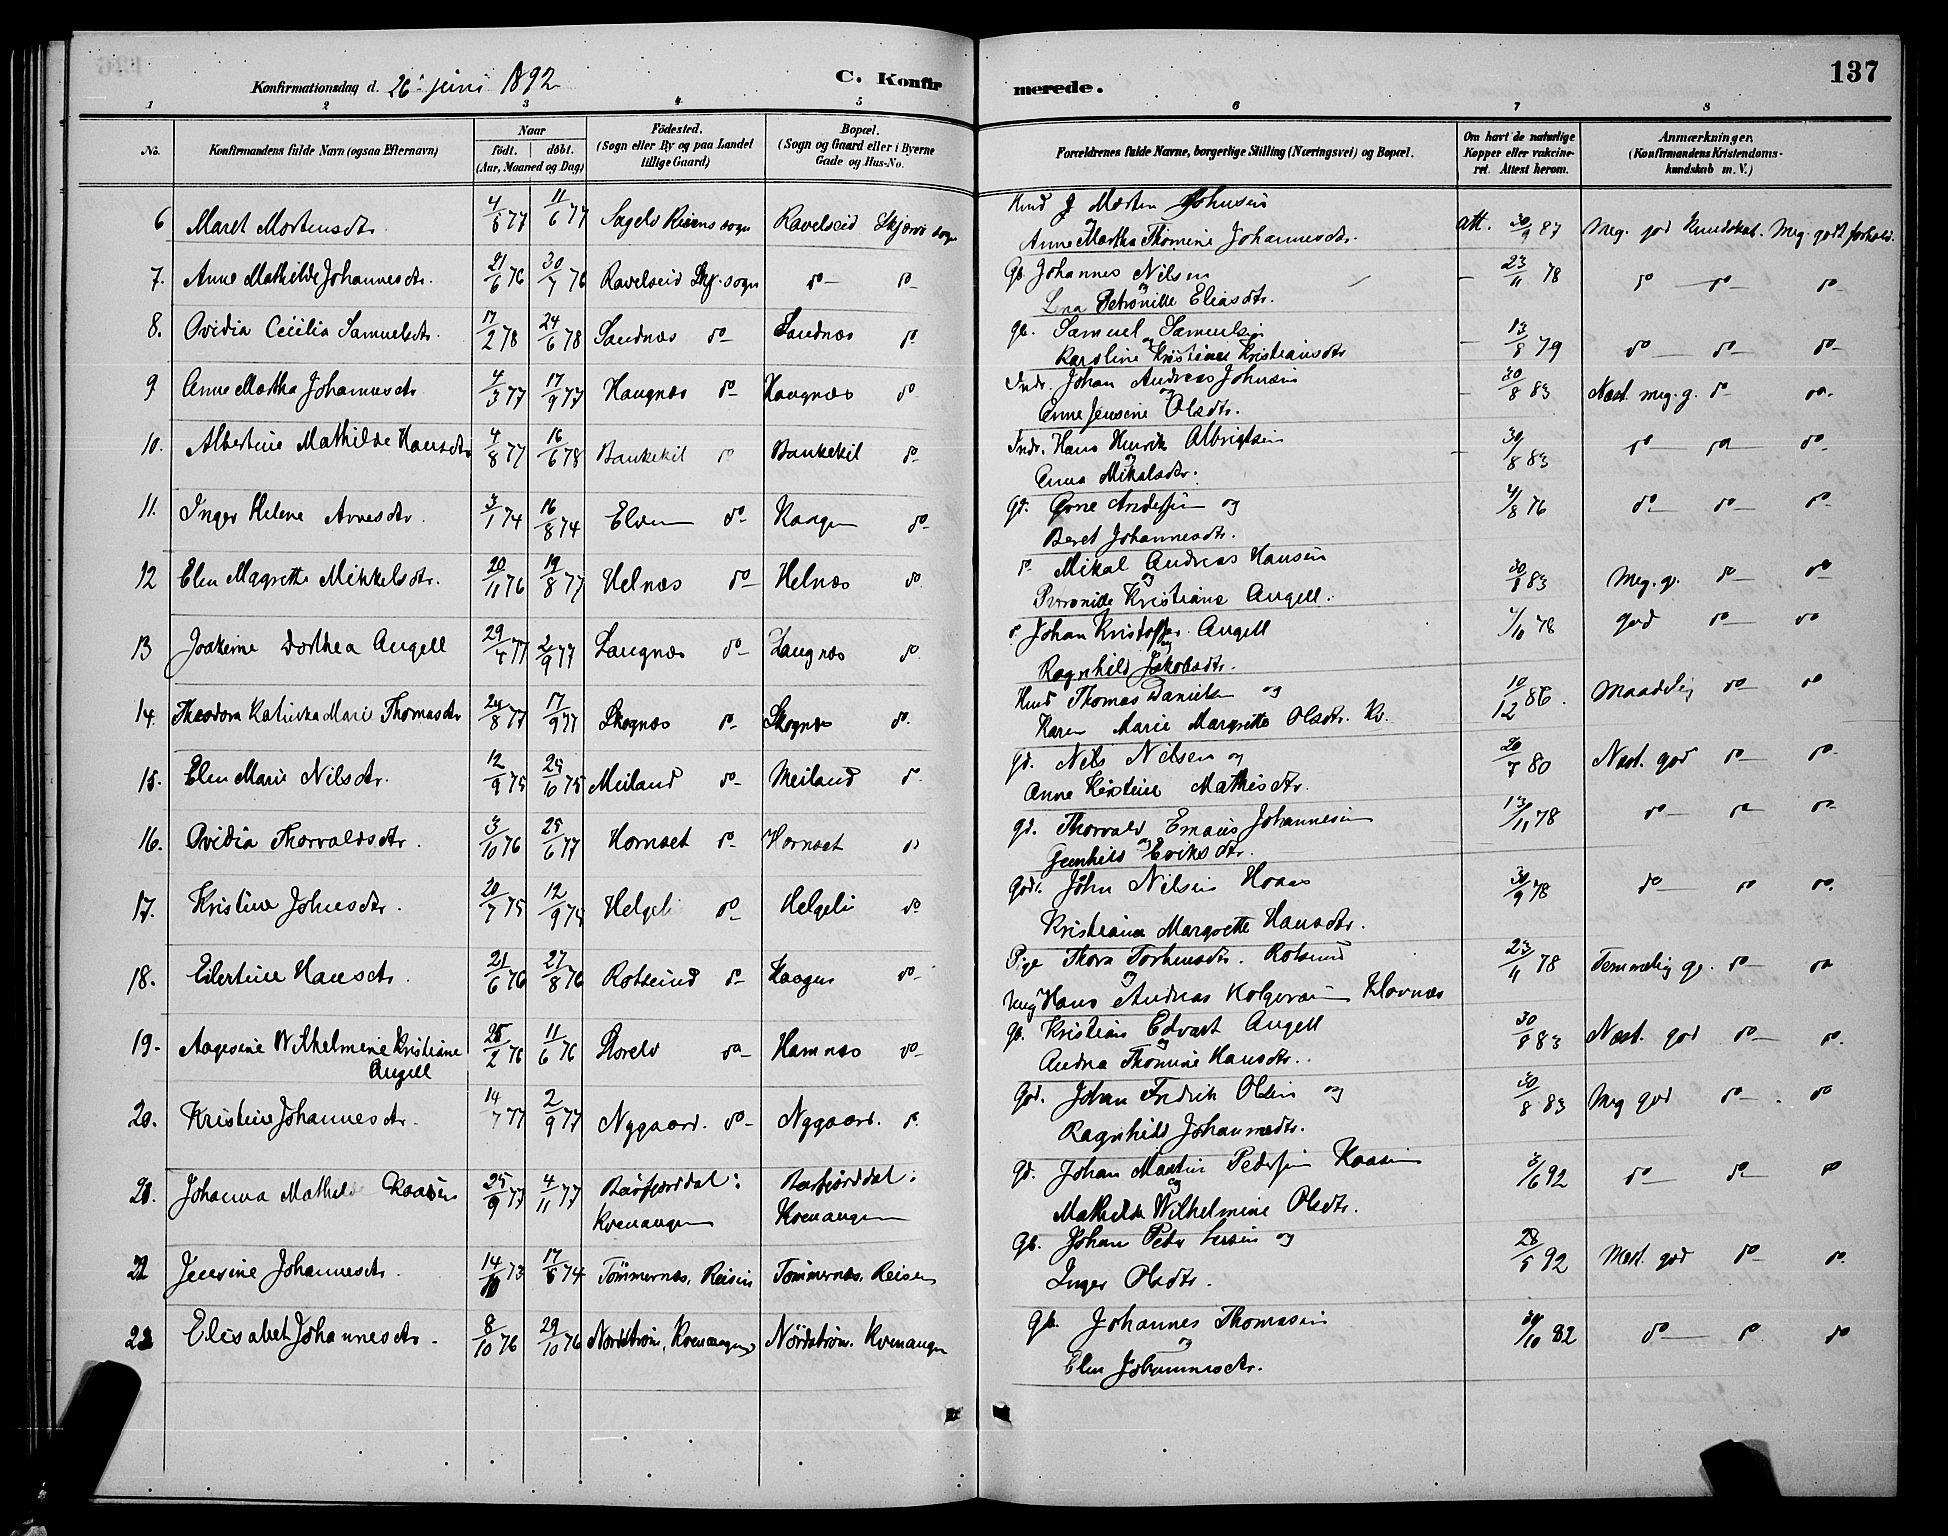 137
Konfirmationsdag d. 26 juni 1892
C. Konfirmerede.
1 2 3 4 5 6 7 8
No. Konfirmandens fulde Navn (ogsaa Efternavn) Naar født. døbt. (Aar, Maaned og Dag) Födested. (Sogn eller By og paa Landet tillige Gaard) Bopæl. (Sogn og Gaard eller i Byerne Gade og Hus-No. Forældrenes fulde Navne, borgerlige Stilling (Næringsvei) og Bopæl. Om havt de naturlige Kopper eller vakcineret. Attest herom. Anmærkninger. (Konfirmandens Kristendomskundskab m. V.)
6 Maret Mortensdtr. 4/5 77 11/6 77 Ravelseid Skjervø sogn Morten Johnsen att. 30/9 87 Meg. god Kundskab. Meg. godt forhold.
Anne Martha Thomine Johannesdtr.
7. Anne Mathilde Johannesdtr. 21/6 76 30/7 76 Ravelseid Skj. sogn do do Gb. Johannes Nilsen 23/11 78 do do do
og
Lina Petronille Eliasdtr.
8. Ovidia Cecilia Samuelsdtr. 17/2 78 24/6 78 Sandnæs do Sandnæs do gb. Samuel Samuelsen 13/8 79 do do do
og
Karoline Kristine Kristiansdtr
9 Anne Martha Johansdtr 4/3 77 17/9 77 Haugnæs do Haugnæs do Indr. Johan Andreas Johnsen 30/8 83 Næst. meg. g. do do.
og
Anne Jensine Olsdtr.
10. Albertine Mathilde Hansdtr 4/8 77 16/6 78 Bankekil do Bankekil do Indr. Hans Henrik Albrigtsen 30/8 83 do do do
og
Anna Mikalsdtr.
11. Inger Helene Arnesdtr. 3/1 74 16/8 74 do Kaagen do gd. Arne Andersen og 4/8 76 do do do
Beret Johannesdtr.
12 Elen Magrette Mikkelsdtr. 20/11 76 19/8 77 Helnæs do Helnæs do do Mikal Andreas Hansen 30/8 83 Meg. g. do do
og
Kristiane Angell.
13 Joakime Dorthea Angell 2/9 77 Laugnæs do Laugnæs do Johan Kristoffer Angell 4/10 78 god do do
og
Ragnhild Jakobsdtr.
14. Theodora Katinka Marie Thomasdtr 24/8 77 17/9 77 Skognæs do Skognæs do. Thomas Danielsen og 10/12 86. Maadelig do do
Karen Marie Margrette Olsdtr. Kv.
15. Elen Marie Nilsdtr. 12/9 75 25/10 75 Meiland do Meiland do gd. Nils Nilsen og 20/7 80 Næst. god do do
Anne Kirstine Mathisdtr.
16. Ovidia Thorvaldsdtr. 3/10 76 25/6 77 Hornset do Hornset do gd. Thorvald Emaus Johannesen 13/11 78 do do do
og
Gunhild Eriksdtr.
17. Kristine Johnsdtr. 20/7 75 12/9 75 Helgeli do Helgeli do Gdr. John Nilsen Hoaas 30/9 78 do do do.
Kristiane Margrette Hansdtr.
18. Eilertine Hansdtr. 21/6 76 27/8 76 Rotsund do Kaagen do Pige Thora Torstensdtr. Rotsund 23/11 78 Temmelig g. do do
og
Ung. Hans Andreas Klovnæs
19. Aagesine Wilhelmine Kristiane 11/6 76 Storelv do Hamnæs do gb. Kristian Edvart Angell 30/8 83 Næst. god do do.
Angell
og
Andrea Thomine Hansdtr.
20. Kristine Johannesdtr. 14/7 77 2/9 77 Nygaard. do Nygaard. do Gdr. Johan Fredrik Olsen og 30/8 83 Meg god do do
Ragnhild Johannesdtr.
21. Johanna Mathilde Kaasen 25/9 77 4/11 77 gd. Johan Martin Pedersen Kaasen 3/6 92 do do do
og
Kvenangen Kvenangen Mathilde Wilhelmine Olsdtr.
22 Jensine Johannesdtr. 14/10 73 17/5 74 Tömmernæs, Reisen Tömmernæs, Reisen Gb. Johan Peder og 28/5 92 Næst. god do do.
Inger Olsdtr.
23 Elisabet Johannesdtr. 8/10 76 29/10 76 Nordström, Kvenangen Nordström. Kvenangen Gb. Johannes Thomasen 30/10 82 do do do
og
Elen Johannesdtr.